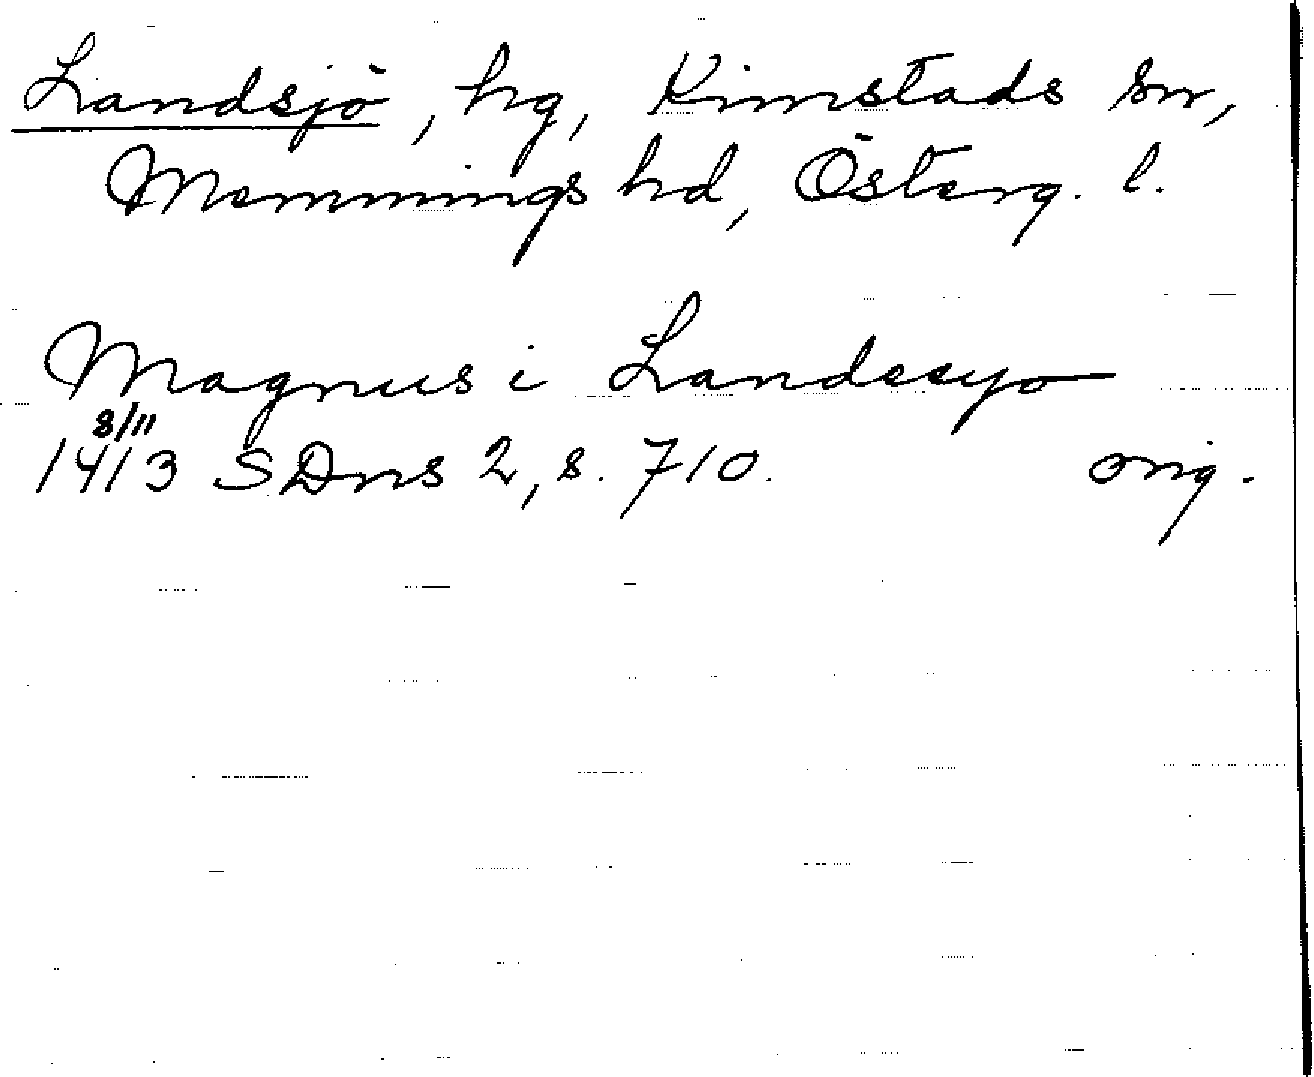 Landsjö, hg, Kimstads sn,
Memmings hd, Österg. l.
Magnus i Landesyo
8/11
1413 SDns 2, s. 710. orig.